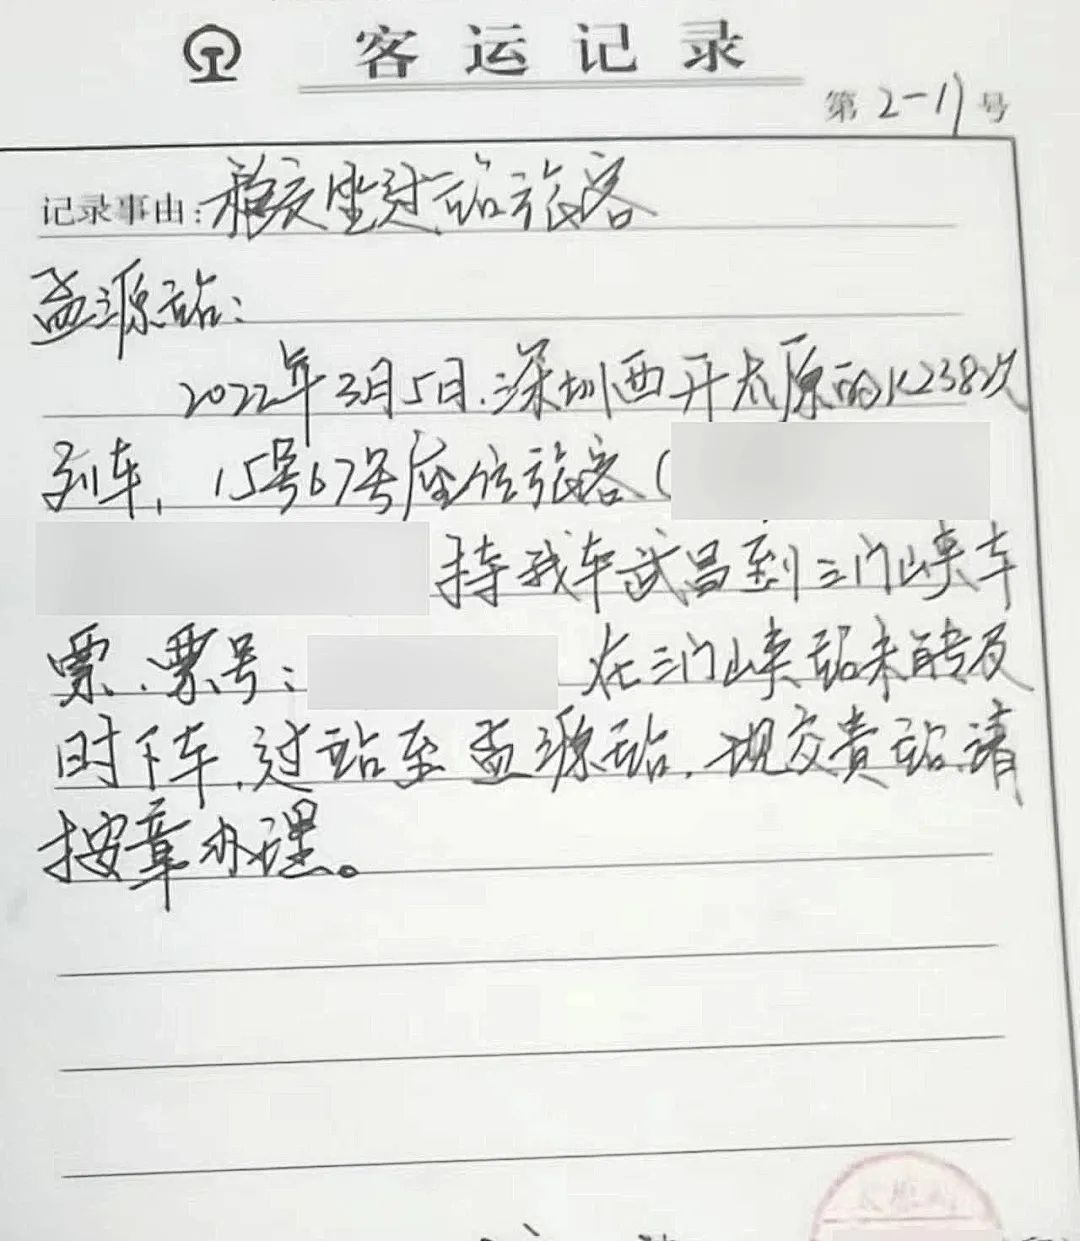 客运记录
第2-17号
记录事由:移交坐过站旅客
孟源站:
2022年3月5日.深圳西开太原的K238次
列车,15号67号座位旅客(
持我车武昌到三门峡车
票、票号: 在三门峡站未能及
时下车,过站至孟源站.现交贵站.请
按章办理。